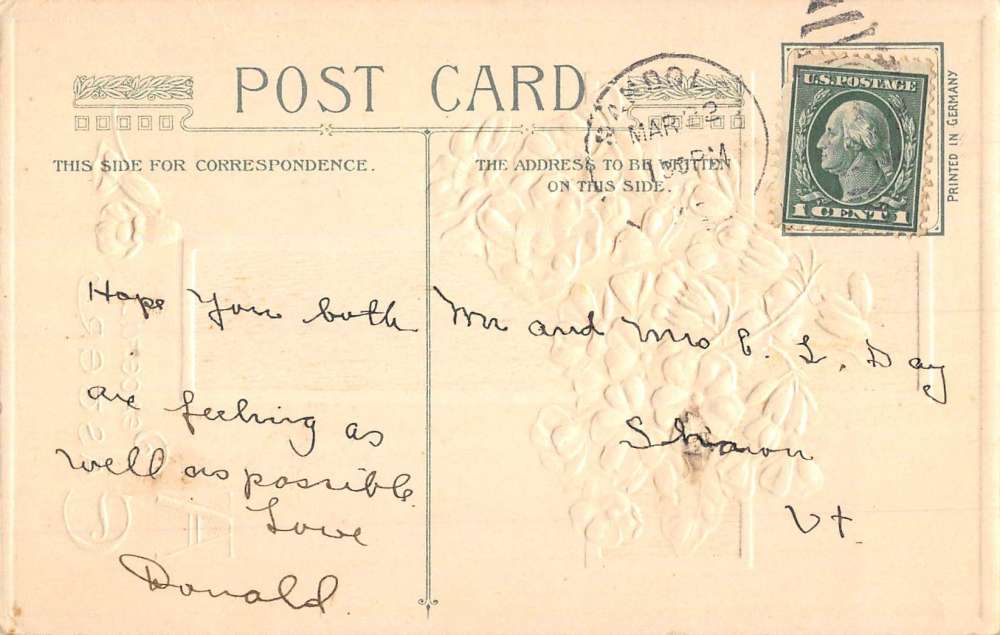 POST CARD
THIS SIDE FOR CORRESPONDENCE.
THE ADDRESS TO BE WRITTEN
ON THIS SIDE.
MAR 22
1 30 PM
U.S. POSTAGE
1 CENT 1
PRINTED IN GERMANY
Hope you both
are feeling as
well as possible
Love
Donald.
Mr and Mrs E. L. Day
Vt